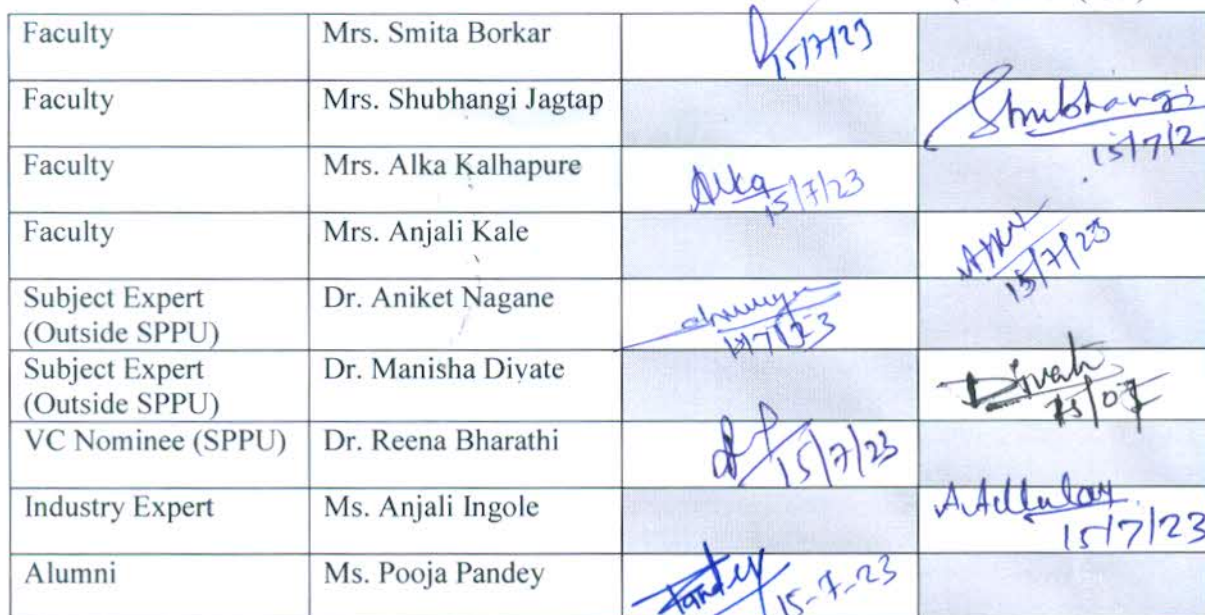 Faculty Mrs. Smita Borkar 15/7/23
Faculty Mrs. Shubhangi Jagtap Shubhangi
15/7/2
Faculty Mrs. Alka Kalhapure Alka
15/7/23
Faculty Mrs. Anjali Kale
15/7/23
Subject Expert Dr. Aniket Nagane
(Outside SPPU)
Subject Expert Dr. Manisha Divate
(Outside SPPU) 15/07
VC Nominee (SPPU) Dr. Reena Bharathi 15/7/23
Industry Expert Ms. Anjali Ingole
15/7/23
Alumni Ms. Pooja Pandey Pandey 15-7-23